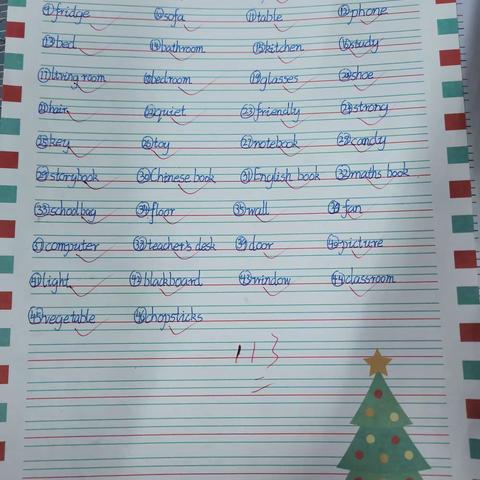 ⑨fridge ⑩sofa ⑪table ⑫phone
⑬bed ⑭bathroom ⑮kitchen ⑯study
⑰living room ⑱bedroom ⑲glasses ⑳shoe
㉑hair ㉒quiet ㉓friendly ㉔strong
㉕key ㉖toy ㉗notebook ㉘candy
㉙storybook ㉚Chinese book ㉛English book ㉜maths book
㉝schoolbag ㉞floor ㉟wall ㊱fan
㊲computer ㊳teacher's desk ㊴door ㊵picture
㊶light ㊷blackboard ㊸window ㊹classroom
㊺vegetable ㊻chopsticks
113